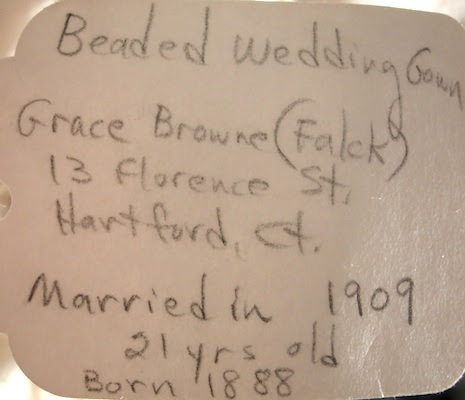 Beaded Wedding Gown
Grace Browne (Falck)
13 Florence St.
Hartford, Ct.
Married in 1909
21 yrs old
Born 1888